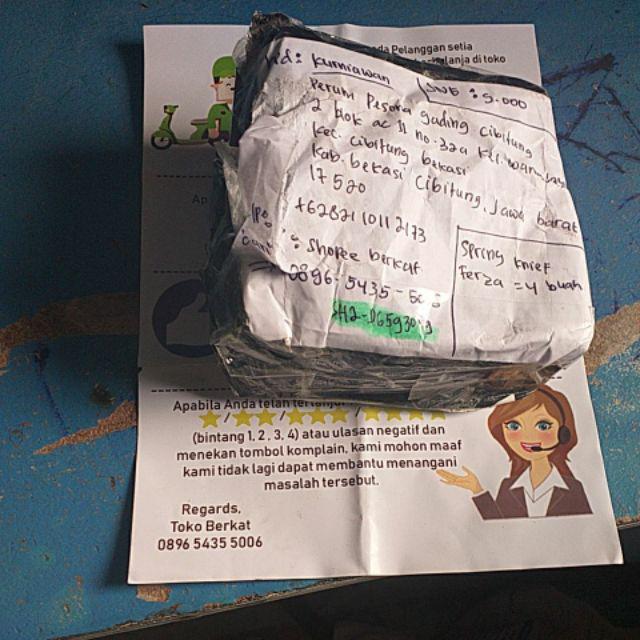 Pelanggan setia
di toko
Kurniawan
5.000
Perum Pesona gading cibitung
2 blok ac 11 no. 32a
kec. cibitung bekasi
kab. bekasi cibitung, jawa barat
17520
+6282110112173
: Shopee berkat
0896-5435-50
Spring knief
Ferza = 4 buah
Apabila Anda telah
(bintang 1, 2 , 3, 4) atau ulasan negatif dan
menekan tombol komplain, kami mohon maaf
kami tidak lagi dapat membantu menangani
masalah tersebut.
Regards,
Toko Berkat
0896 5435 5006